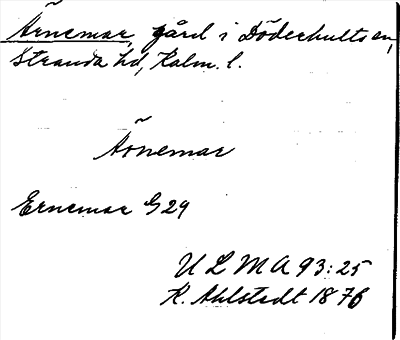 Ãrnemar, gård i Döderhults sn,
Stranda hd, Kalm. l.
Ãrnemar
Ernemar G29
ULMA 93:25
R. Ahlstedt 1876